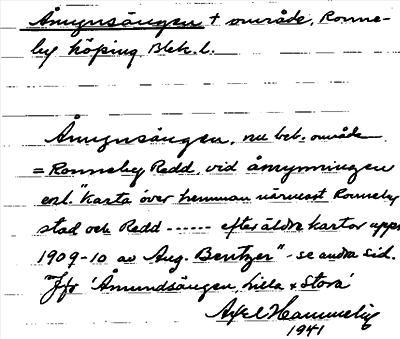 Åmynsängen † område, Ronne-
by köping Blek. l.
Åmynsängen, nu beb. område
= Ronneby Redd, vid åmynningen
enl. "Karta över hemman närmast Ronneby
stad och Redd ------ efter äldre kartor uppr.
1909-10 av Aug. Bentzer" - se andra sid.
Jfr 'Åmundsängen, Lilla & Stora'
Axel Hammelig
1941